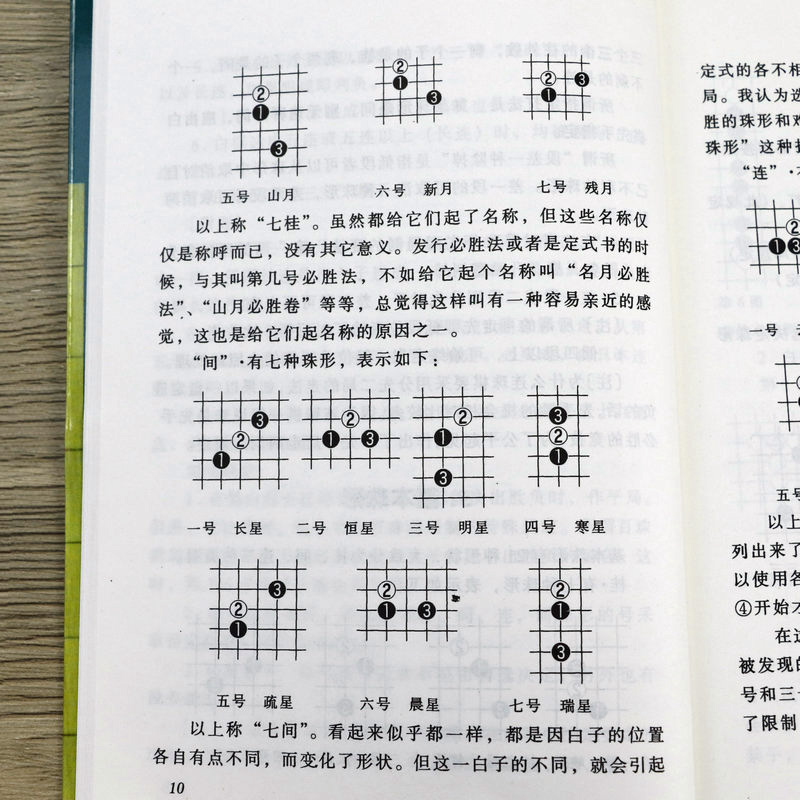 五号 山月
六号 新月
七号 残月
以上称“七桂”。虽然都给它们起了名称，但这些名称仅
仅是称呼而已，没有其它意义。发行必胜法或者是定式书的时
候，与其叫第几号必胜法，不如给它起个名称叫“名月必胜
法”、“山月必胜卷”等等，总觉得这样叫有一种容易亲近的感
觉，这也是给它们起名称的原因之一。
“间”·有七种珠形，表示如下：
一号 长星
二号 恒星
三号 明星
四号 寒星
五号 疏星
六号 晨星
七号 瑞星
以上称“七间”。看起来似乎都一样，都是因白子的位置
各自有点不同，而变化了形状。但这一白子的不同，就会引起
10
定式的各不相
局。我认为选
胜的珠形和难
珠形”这种
“连”·
一号
五号
以上
列出来了
以使用各
④开始
在这
被发现的
号和三
了限制